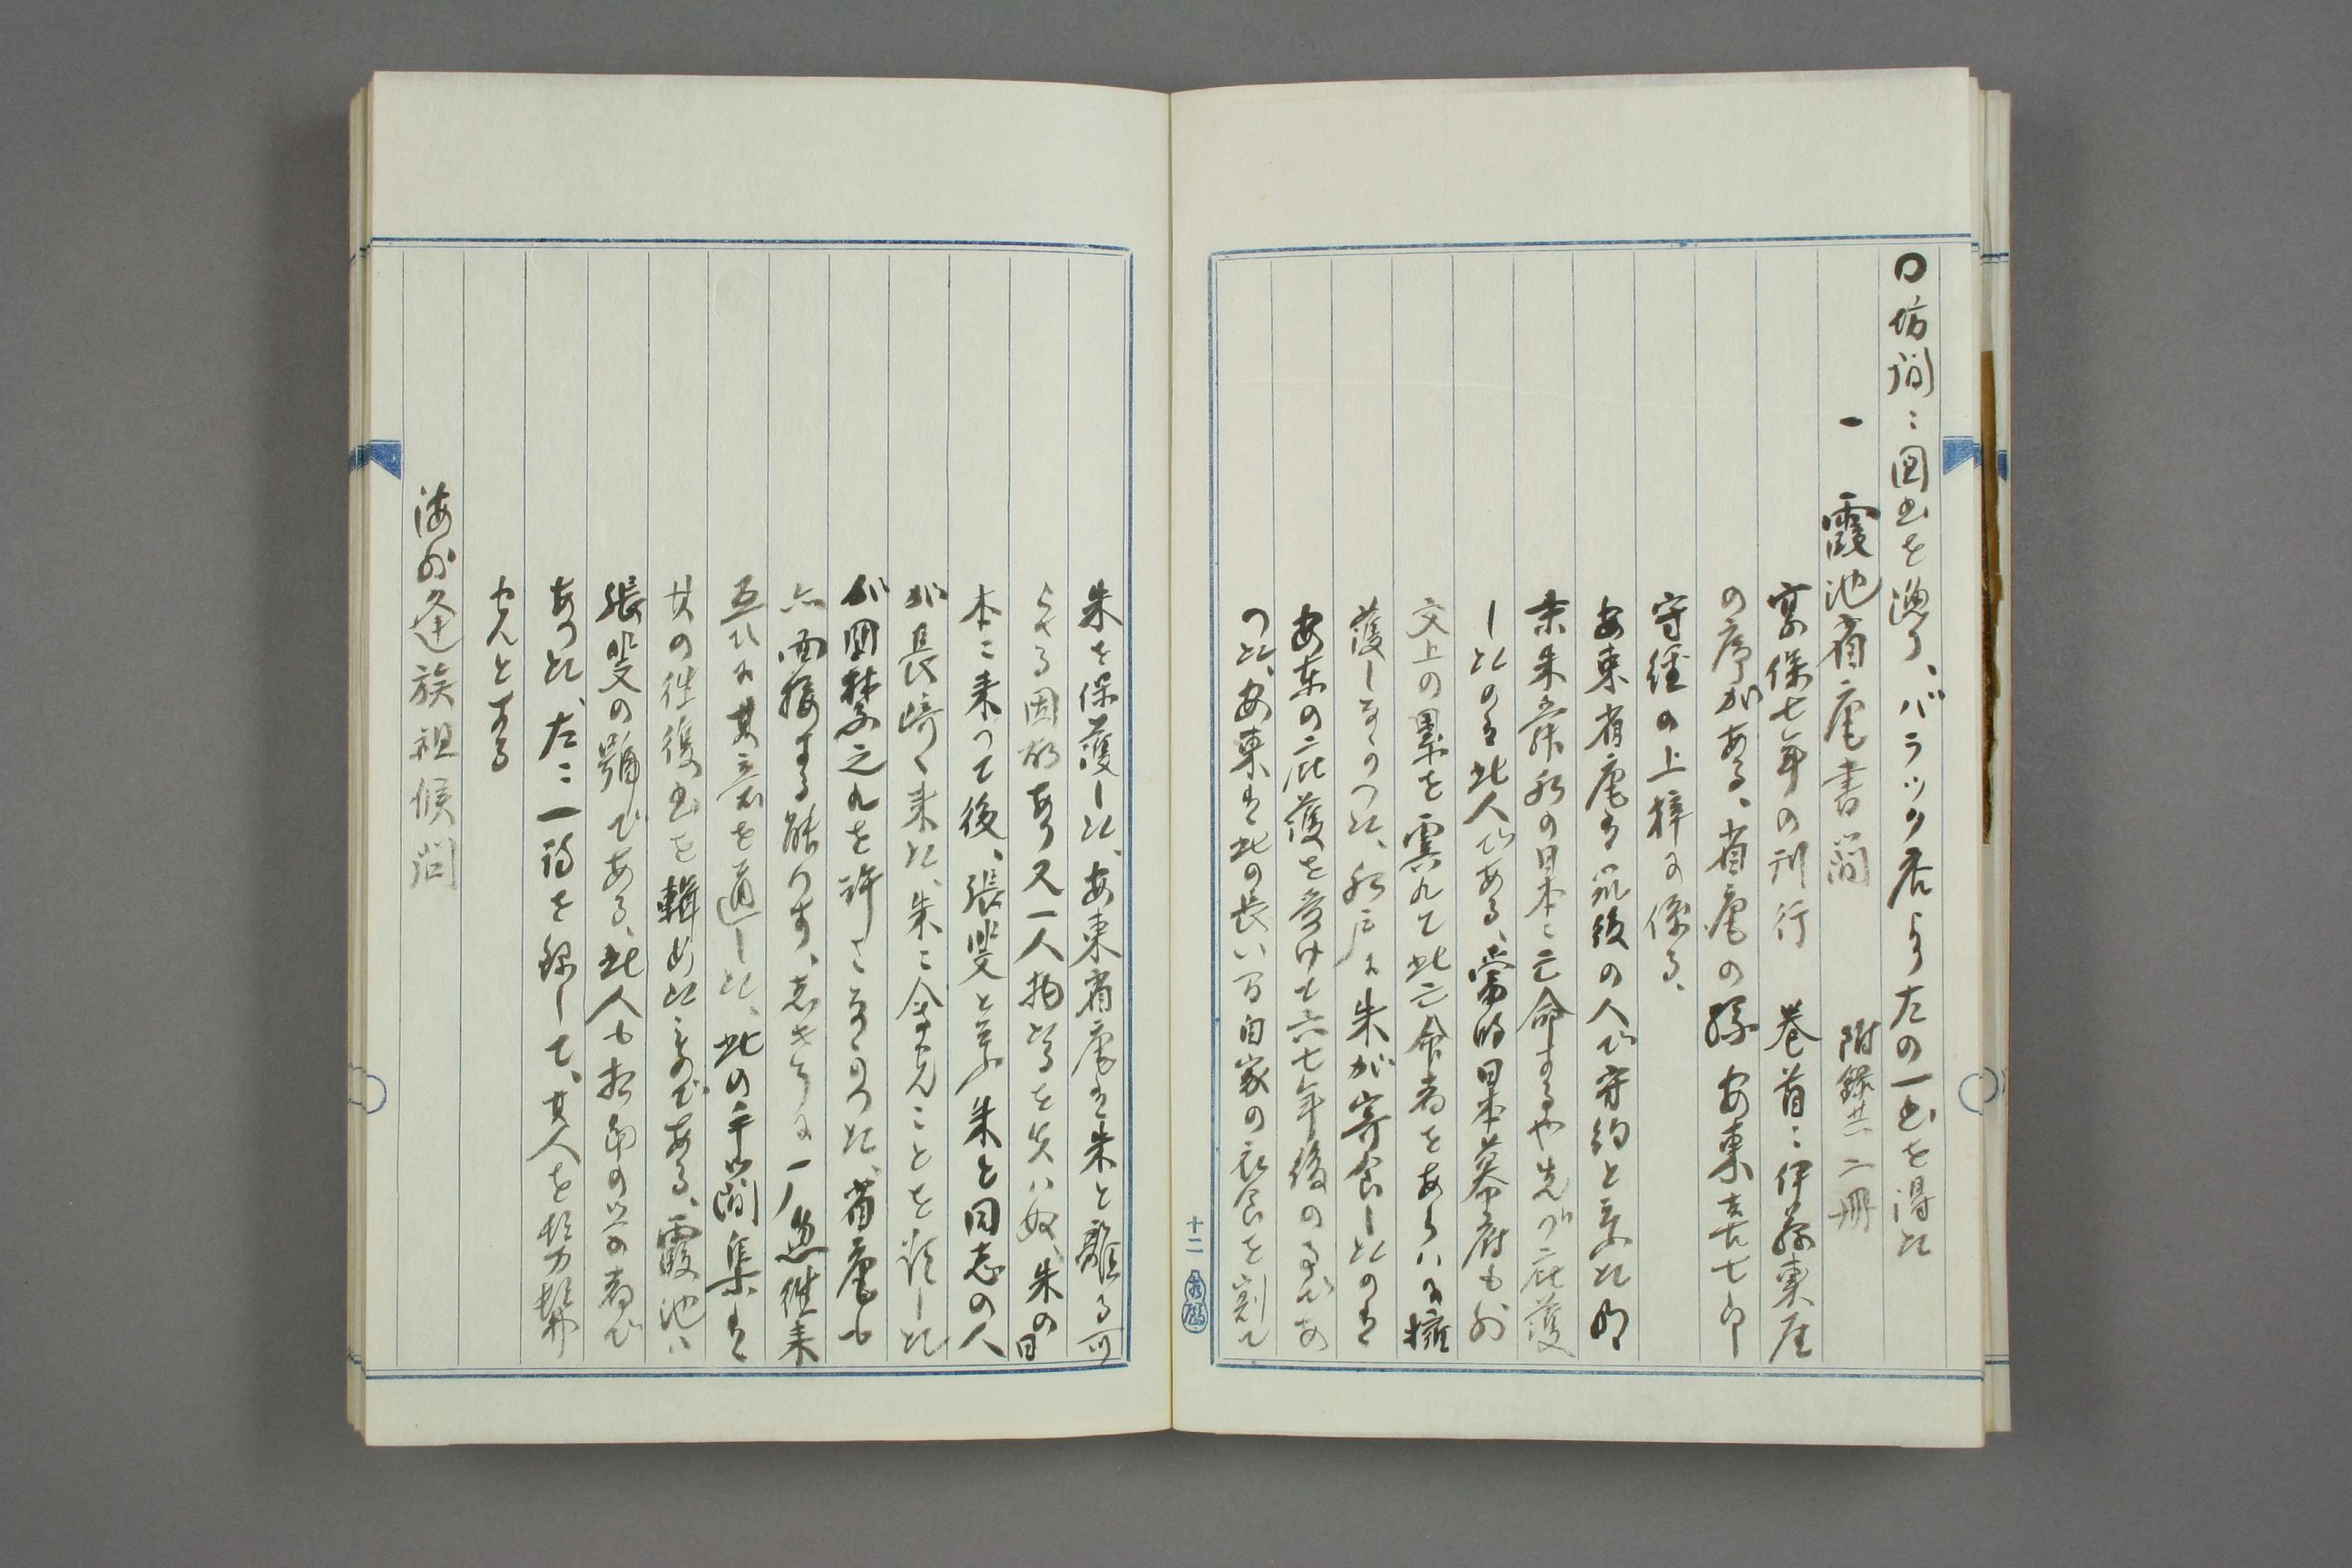 〇坊間ニ図書を漁り、バラック店より左の一書を得た
一 霞池省庵書簡 附録共二冊
享保七年の刊行 巻首ニ伊藤東涯
の序がある、省庵の孫安東喜七郎
守経の上梓に係る、
安東省庵は筑後の人で守約と云ふた明
末朱舜水の日本ニ亡命するや先づ庇護
したのは此人である、当時日本幕府も外
交上の累を虞れて此亡命者をあらハに擁
護しなかつた、水戸に朱が寄食したのは
安東の庇護を受けて六七年後の事であ
つた、安東は此の長い間自家の衣食を割て
朱を保護した、安東省庵は朱と離る可
らざる因縁あり又一人張斐を失ハぬ、朱の日
本ニ来つて後、張斐と云ふ朱と同志の人
が長崎へ来た、朱ニ会ハんことを謀した
が国禁之れを許さなかつた、省庵も
亦面接する能ハず、志きりに一ノ魚往来
互ひに其意を通した、此の手簡集は
其の往復書を輯めた者である、霞池ハ
張斐の号である、此人も相当の学者で
あつた、左ニ一詩を録して、其人を髣髴
せんとする
海外逢族祖候問
十二